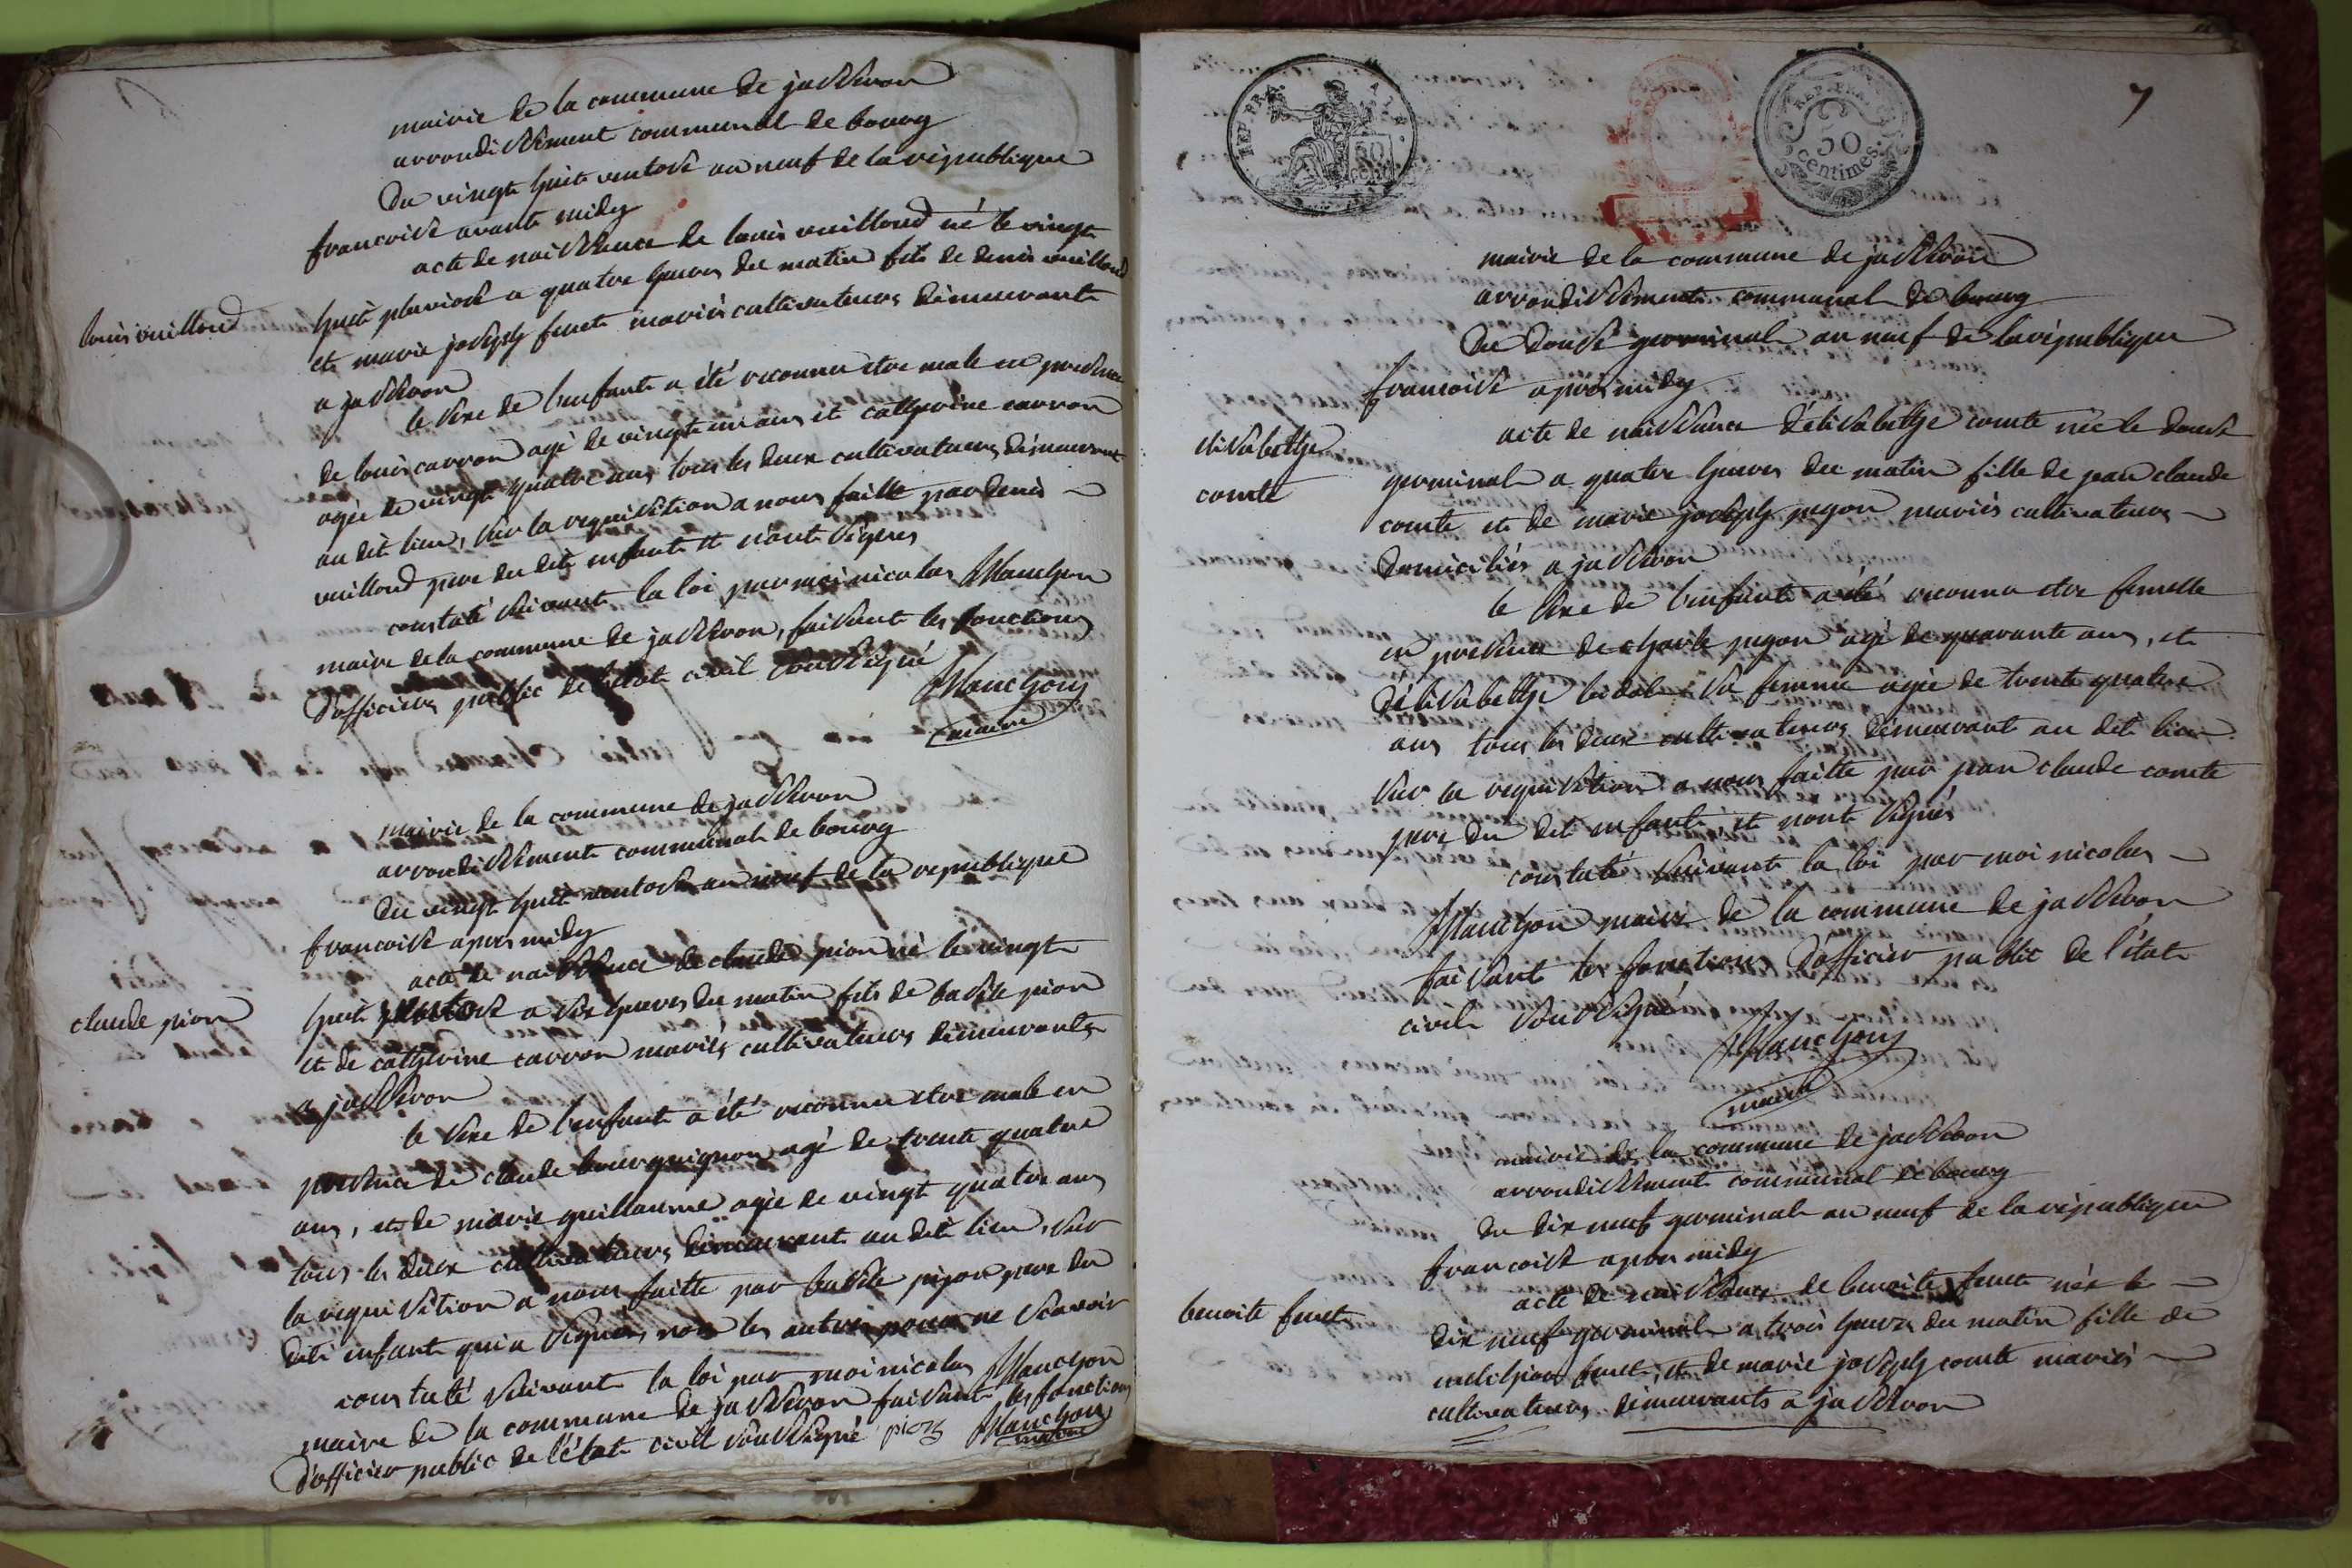 mairie de la commune de jasseron
arrondissement communal de bourg
Du vingt huit ventose an neuf de la république
francoise avant midy
acte de naissance de louis vuilloud né le vingt
louis vuilloud
huit pluviose a quatre heures du matin fils de denis vuilloud
et marie joseph furet mariés cultivateurs demeurants
a jasseron
le sexe de l'enfant a été reconnu etre male en presence
de louis carron agé de vingt un ans et catherine carron
agée de vingt quatre ans tous les deux cultivateurs demeurant
au dit lieu, sur la requisition a nous faitte par denis
vuilloud pere du dit enfant et n'ont signes
constaté suivant la loi par moi nicolas Manchon
maire de la commune de jasseron, faisant les fonctions
d'officiers public de l'état civil soussigné
Manchon
maire
mairie de la commune de jasseron
arrondissement communal de bourg
du vingt huit ventose an neuf de la republique
francoise apres midy
acte de naissance de claude pion né le vingt
claude pion
huit ventose a six heures du matin fils de basile pion
et de catherine carron mariés cultivateurs demeurants
a jasseron
le sexe de l'enfant a été reconnu etre male en
presence de claude bourguignon agé de trente quatre
ans, et de marie guillaume agée de vingt quatre ans
tous les deux cultivateurs demeurant au dit lieu, sur
la requisition a nous faitte par basile pion pere du
dit enfant qui a signés, non les autres pour ne scavoir
constaté suivant la loi par moi nicolas Manchon
maire de la commune de jasseron faisant les fonctions
d'officier public de l'état civil soussigné pion Manchon
maire
7
REP. FRA.
50
cent
REP. FRA.
50
centimes.
mairie de la commune de jasseron
arrondissement communal de bourg
Du douse germinal an neuf de la république
francoise apres midy
acte de naissance d'élisabethe comte née le douse
elisabethe
comte
germinal a quatre heures du matin fille de jean claude
comte et de marie joseph pegon mariés cultivateurs
domiciliés a jasseron
le sexe de l'enfant a été reconnu etre femelle
en presence de charle pegon agé de quarante ans, et
d'élisabethe sa femme agée de trente quatre
ans tous les deux cultivateurs demeurant au dit lieu
sur la requisition a nous faitte par jean claude comte
pere du dit enfant, et n'ont signés
constaté suivant la loi par moi nicolas
Manchon maire de la commune de jasseron
faisant les fonctions d'officier public de l'état
civil soussigné
Manchon
maire
mairie de la commune de jasseron
arrondissement communal de bourg
du dix neuf germinal an neuf de la république
francoise apres midy
acte de naissance de benoite furet née le
benoite furet
dix neuf germinal a trois heures du matin fille de
melchior furet, et de marie joseph comte mariés
cultivateurs demeurants a jasseron